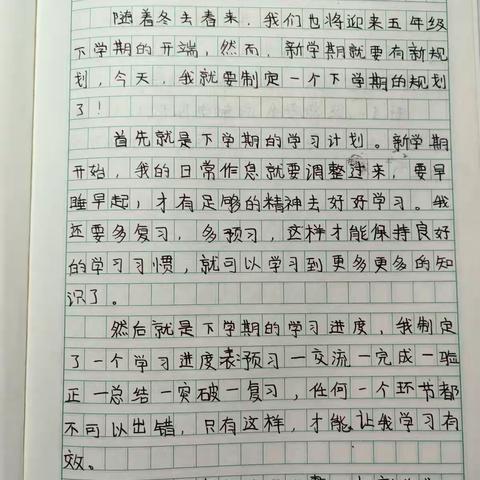 随着冬去春来，我们也将迎来五年级
下学期的开端，然而，新学期就要有新规
划，今天，我就要制定一个下学期的规划
了！
首先就是下学期的学习计划。新学期
开始，我的日常作息就要调整过来，要早
睡早起，才有足够的精神去好好学习。我
还要多复习，多预习，这样才能保持良好
的学习习惯，就可以学习到更多更多的知
识了。
然后就是下学期的学习进度，我制定
了一个学习进度表预习一交流一完成一验
正一总结一突破一复习，任何一个环节都
不可以出错，只有这样，才能让我学习有
效。